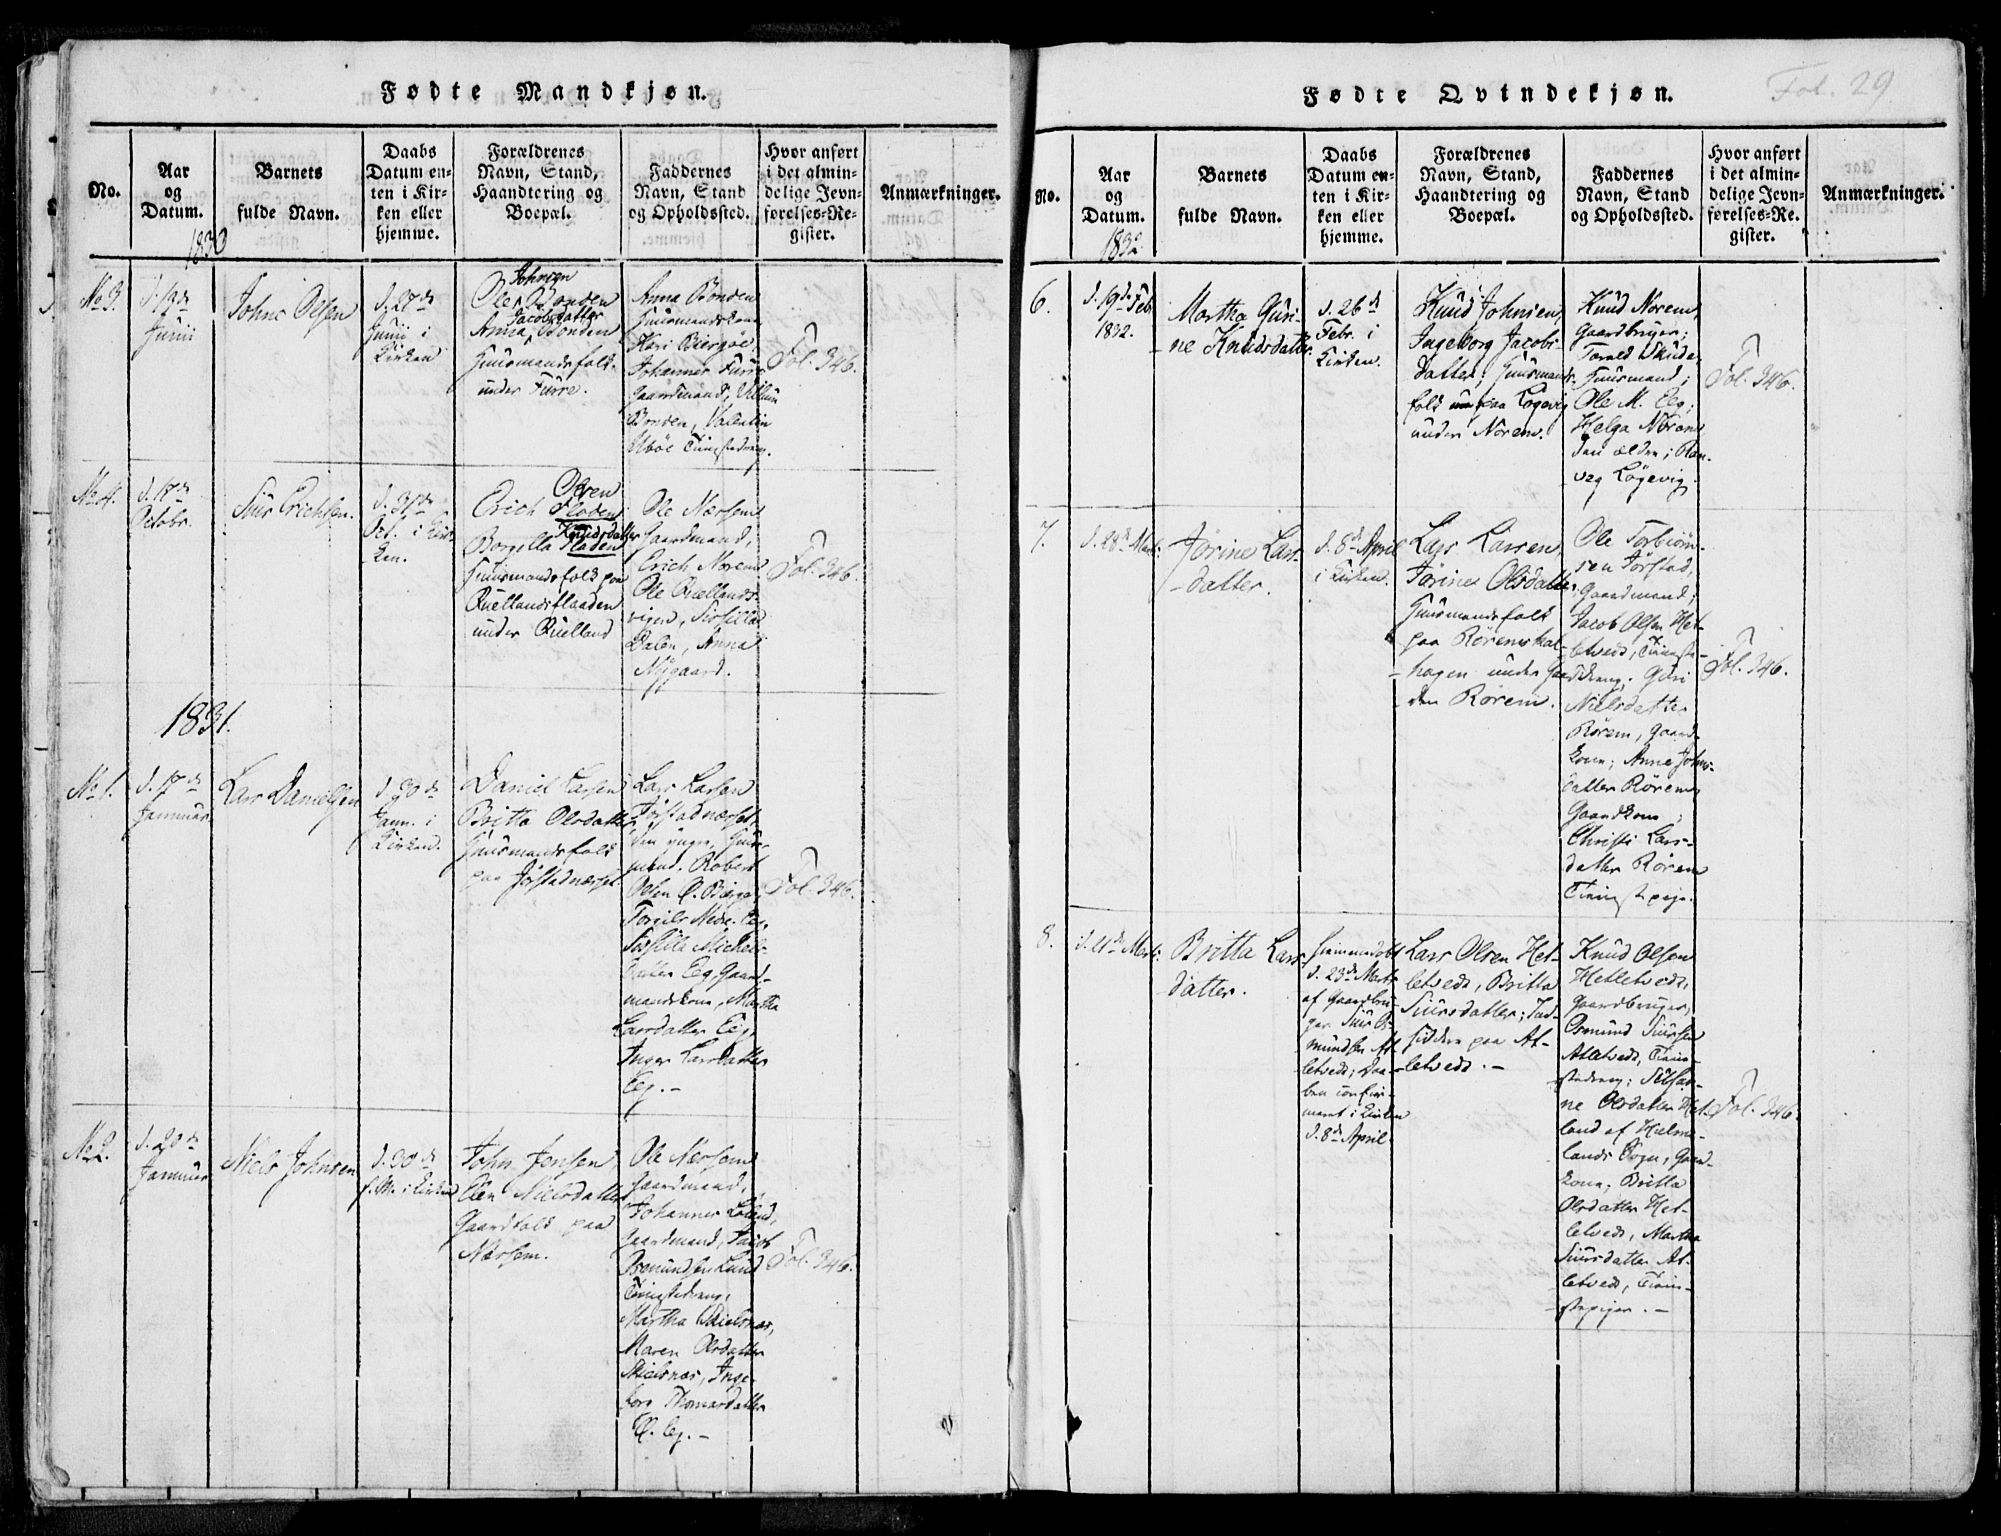 Fødte Mandkjøn.
No.
Aar
og
Datum.
Barnets
fulde Navn.
Daabs
Datum en-
ten i Kir-
ken eller
hjemme.
Forældrenes
Navn, Stand,
Haandtering og
Boepæl.
Faddernes
Navn, Stand
og Opholdssted.
Hvor anført
i det almin-
delige Jevn-
førelses-Re-
gister.
Anmærkninger.
1830
No 3.
Junii
Johns Olsen
d. 27de
Junii i
Kirken
Johnsen
Ole Bonden
Jacobsdatter
Anna Bonden
Huusmandsfolk
under Furre.
Anna Bonden
Huusmandskone
Kari Biergøe
Johannes Furre
Gaardmand, Villum
Bonden, Valentin
Fol. 346.
No 4.
d. 17de
Octobr.
Siur Erichsen.
d. 31te
Oct. i Kir-
ken.
Olsen
Erich Floden
Knudsdatter
Borgilla Floden
Huusmandsfolk paa
Qvellandsflaaden
under Qvelland
Ole Nærsem
Gaardmand,
Erich Norem
Ole Qvellands-
vigen, Siosilla
Dalen, Anna
Nygaard.
Fol. 346.
1831.
No 1.
d. 17de
Januar
Lars Danielsen
d. 30de
Jann. i
Kirken.
Daniel Larsen
Britta Olsdatter
Huusmandsfolk
paa Jøstadnæset
Lars Larsen
Jøstadnæset,
den yngre, Huus-
mand. Robert
Olsen
Torgils Nedre Eeg,
Siosille Michels-
datter Eeg Gaard-
mandskone, Martha
Larsdatter Eeg
Inger Larsdatter
Eeg. -
Fol. 346.
No 2.
d. 20de
Januar
Niels Johnsen
d. 30de
f. M. i Kirken
John Jensen
Elen Nielsdatter
Gaardfolk paa
Nærsem.
Ole Nærsem
Gaardmand,
Johannes
Gaardmand, Jacob
Osmundsen Lund
Tienestedreng,
Martha Skielsnæs,
Maren Olsdatter
Skielsnæs, Inge-
borg Thomasdatter
Eeg. -
Fol. 346.
Fødte Qvindekjøn.
Fol. 29
No.
Aar
og
Datum.
Barnets
fulde Navn.
Daabs
Datum en-
ten i Kir-
ken eller
hjemme.
Forældrenes
Navn, Stand,
Haandtering og
Boepæl.
Faddernes
Navn, Stand
og Opholdssted.
Hvor anført
i det almin-
delige Jevn-
førelses-Re-
gister.
Anmærkninger.
1832
6.
d. 19de Feb.
1832.
Martha Guri-
ne Knudsdatter.
d. 26de
Febr. i
Kirken.
Knud Johnsen,
Ingeborg Jacobs-
datter; Huusmands-
folk paa Løgevig
under Norem.
Knud Norem,
Gaardbruger;
Torald Skude,
Huusmand;
Ole M. Eeg;
Helga Norem
den ældre; Ran-
veg Løgevig.
Fol. 346.
7.
d. 28de Mart.
Jorine Lars-
datter.
d. 8de April
i Kirken.
Lars Larsen,
Jorine Olsdatter,
Huusmandsfolk
paa Røremskal-
hagen under Gaar-
den Rørem.
Ole Torbiørn-
sen Jøstad,
Gaardmand;
Jacob Olsen Het-
letvedt, Tieneste-
dreng; Guri
Nielsdatter
Rørem, Gaard-
kone; Anne Johns-
datter Rørem
Gaardkone;
Christi Lars-
datter Rørem
Tienestepige.
Fol. 346.
8.
d. 21de Mart.
Britta Lars-
datter.
Hiemmedøbt
d. 23de Mart.
af Gaardbru-
ger Siur Os-
mundsen At-
letvedt; Daa-
ben confir-
meret i Kirken
d. 8de April.
Lars Olsen Het-
letvedt, Britta
Siursdatter; Ind-
siddere paa At-
letvedt. -
Knud Olsen
Hetletvedt,
Gaardbruger;
Osmund Siursen
Atletvedt, Tiene-
stedreng;
ne Olsdatter Het-
land af Hielme-
lands Sogn, Gaard-
kone; Britta
Olsdatter Het-
letvedt, Martha
Siursdatter At-
letvedt, Tiene-
stepiger. -
Fol. 346.